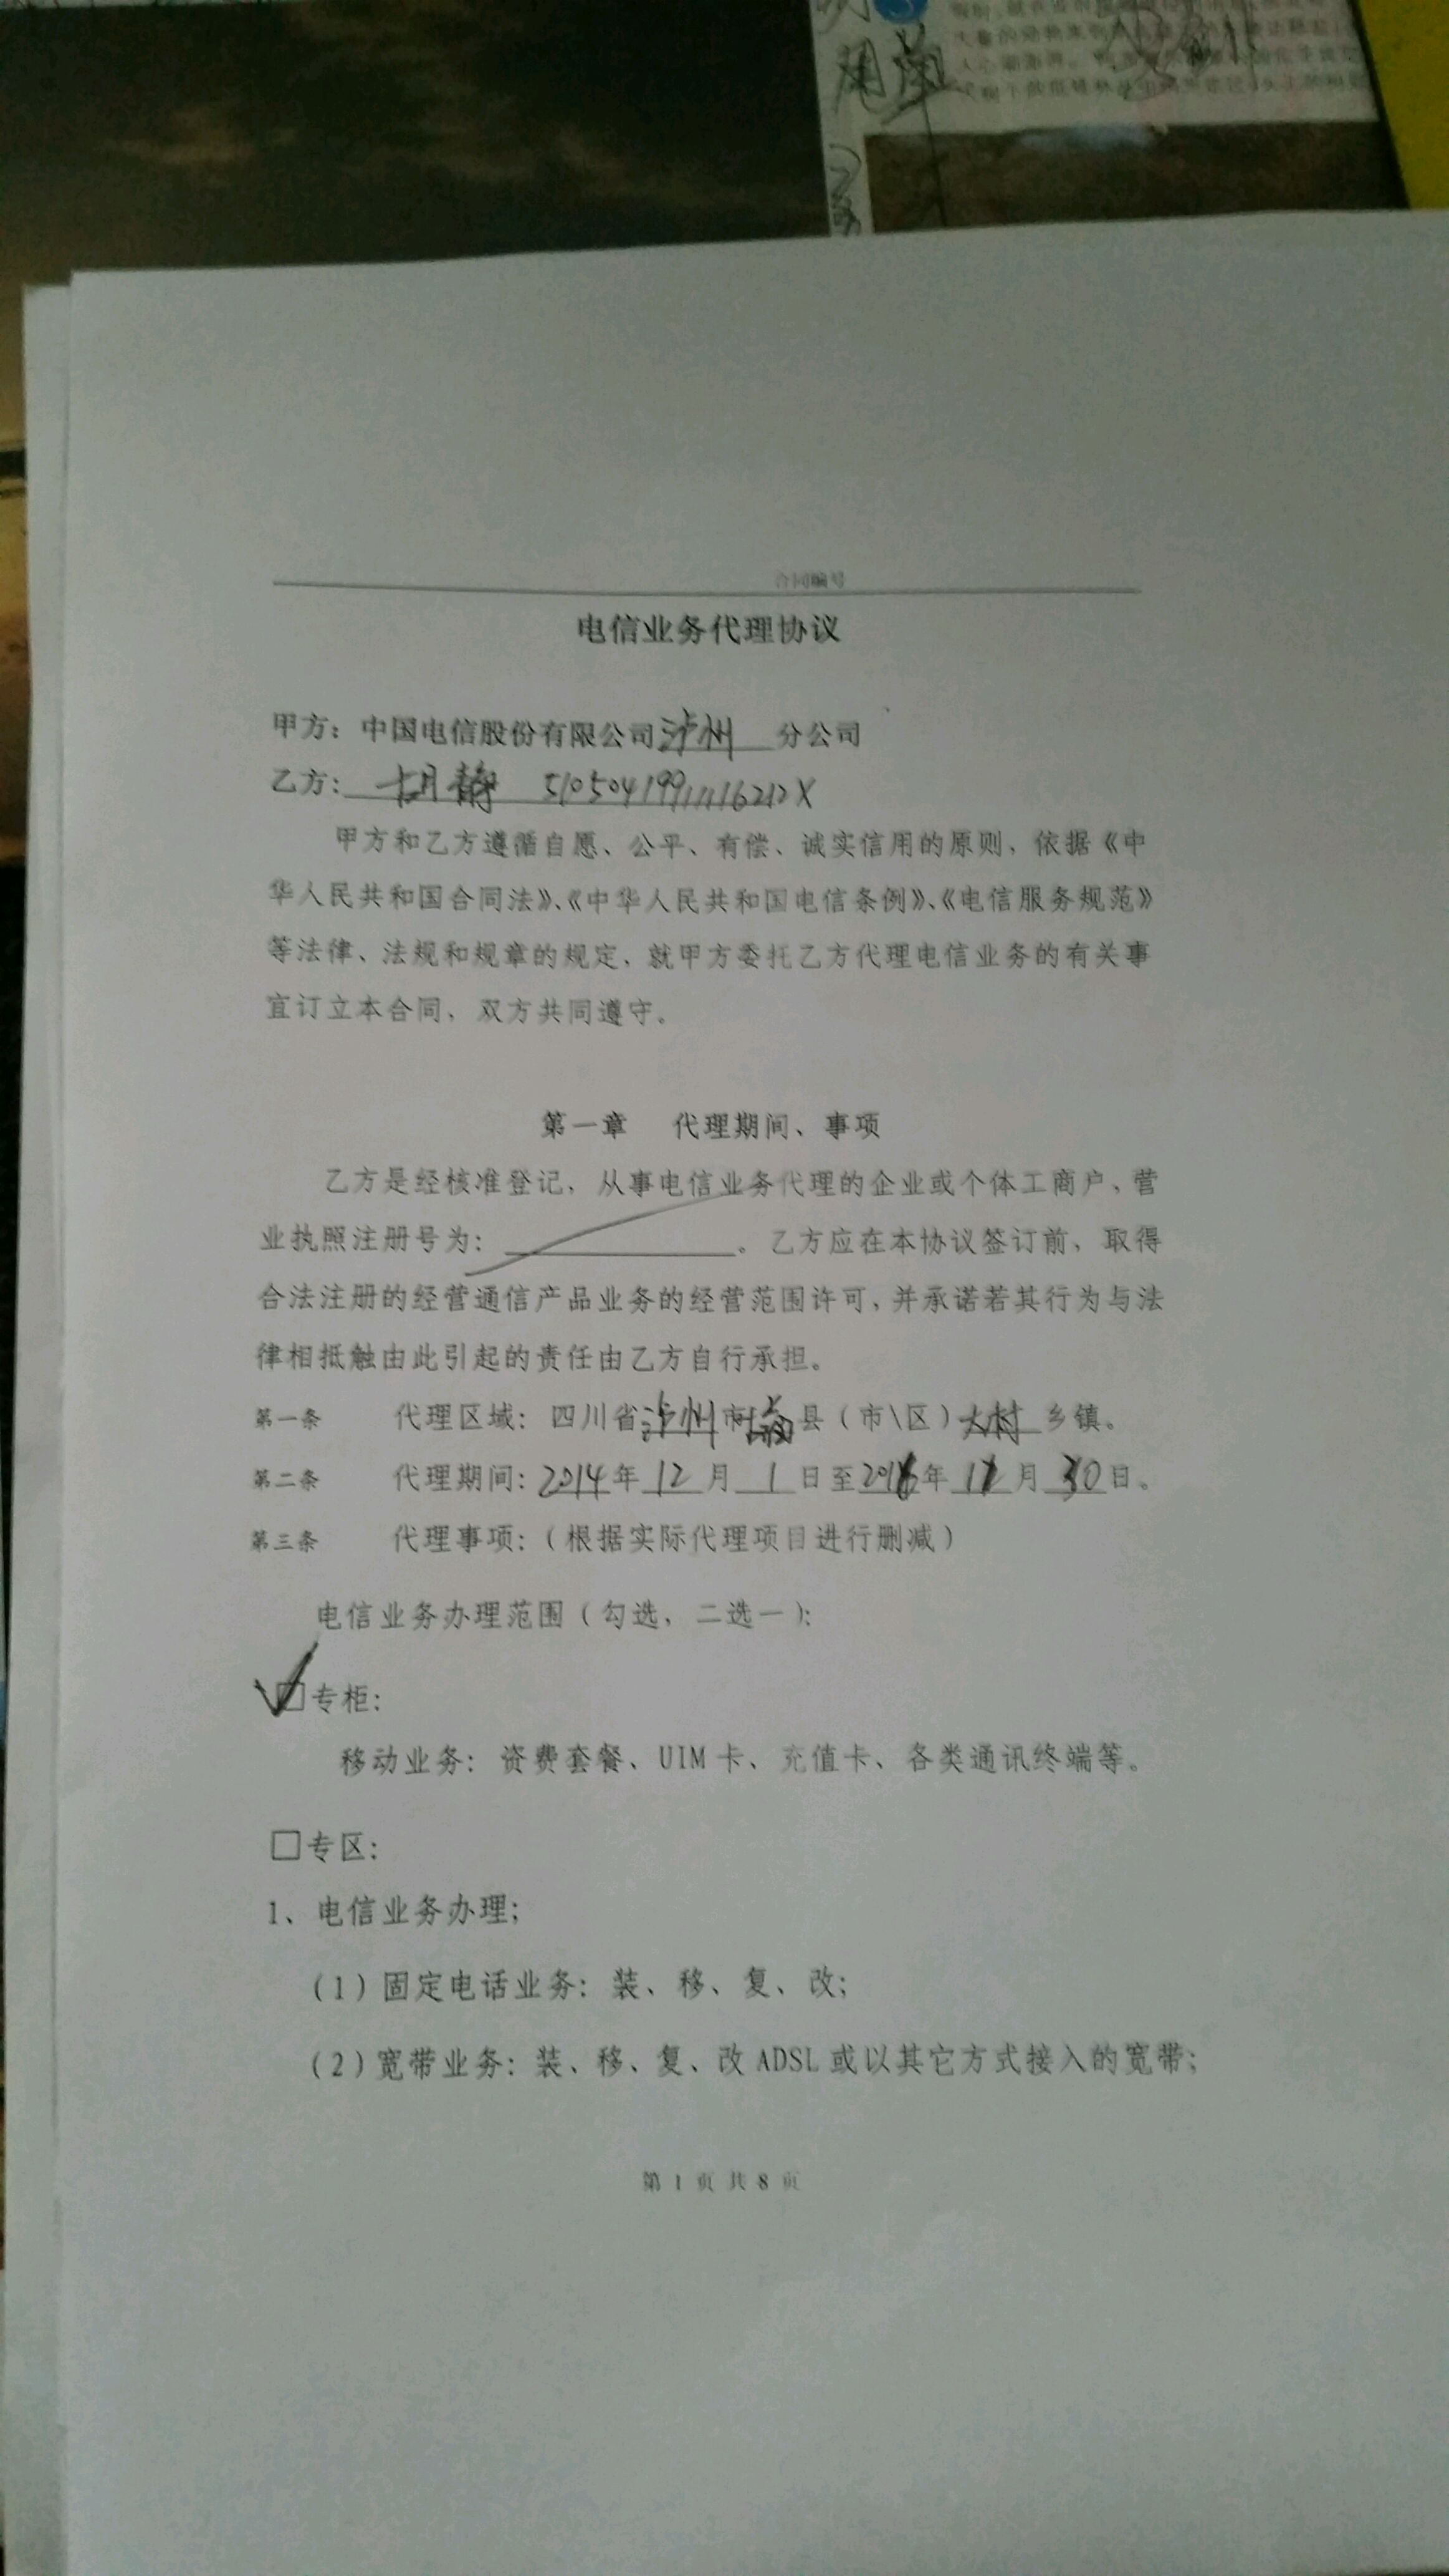 合同编号
电信业务代理协议
甲方：中国电信股份有限公司泸州 分公司
乙方：胡静 51050419911116212X
甲方和乙方遵循自愿、公平、有偿、诚实信用的原则，依据《中
华人民共和国合同法》、《中华人民共和国电信条例》、《电信服务规范》
等法律、法规和规章的规定，就甲方委托乙方代理电信业务的有关事
宜订立本合同，双方共同遵守。
第一章 代理期间、事项
乙方是经核准登记，从事电信业务代理的企业或个体工商户，营
业执照注册号为：。乙方应在本协议签订前，取得
合法注册的经营通信产品业务的经营范围许可，并承诺若其行为与法
律相抵触由此引起的责任由乙方自行承担。
第一条 代理区域：四川省泸州市县（市\区）大村乡镇。
第二条 代理期间：2014年12月1日至年月30日。
第三条 代理事项：（根据实际代理项目进行删减）
电信业务办理范围（勾选，二选一）：
☑专柜：
移动业务：资费套餐、UIM卡、充值卡、各类通讯终端等。
□专区：
1、电信业务办理；
（1）固定电话业务：装、移、复、改；
（2）宽带业务：装、移、复、改ADSL或以其它方式接入的宽带；
第 1 页 共 8 页